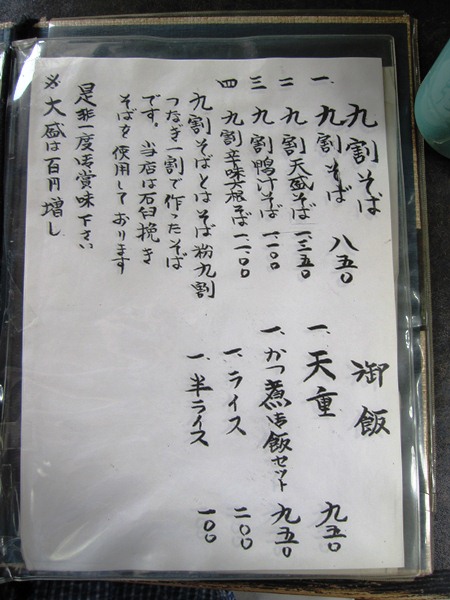 九割そば
一、九割そば 八五〇
二、九割天盛そば 一三五〇
三、九割鴨汁そば 一一〇〇
四、九割辛味大根そば 一一〇〇
九割そばとはそば粉九割
つなぎ一割で作ったそば
です。当店は石臼挽き
そばを使用しております
是非一度御賞味下さい
※大盛は百円増し
御飯
一、天重 九五〇
一、かつ煮御飯セット 九五〇
一、ライス 二〇〇
一、半ライス 一〇〇